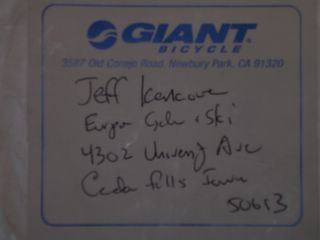 GIANT
BICYCLE
3587 Old Conejo Road, Newbury Park, CA 91320
Jeff
Ski
4302 Ave
Cedar Falls Iowa
50613